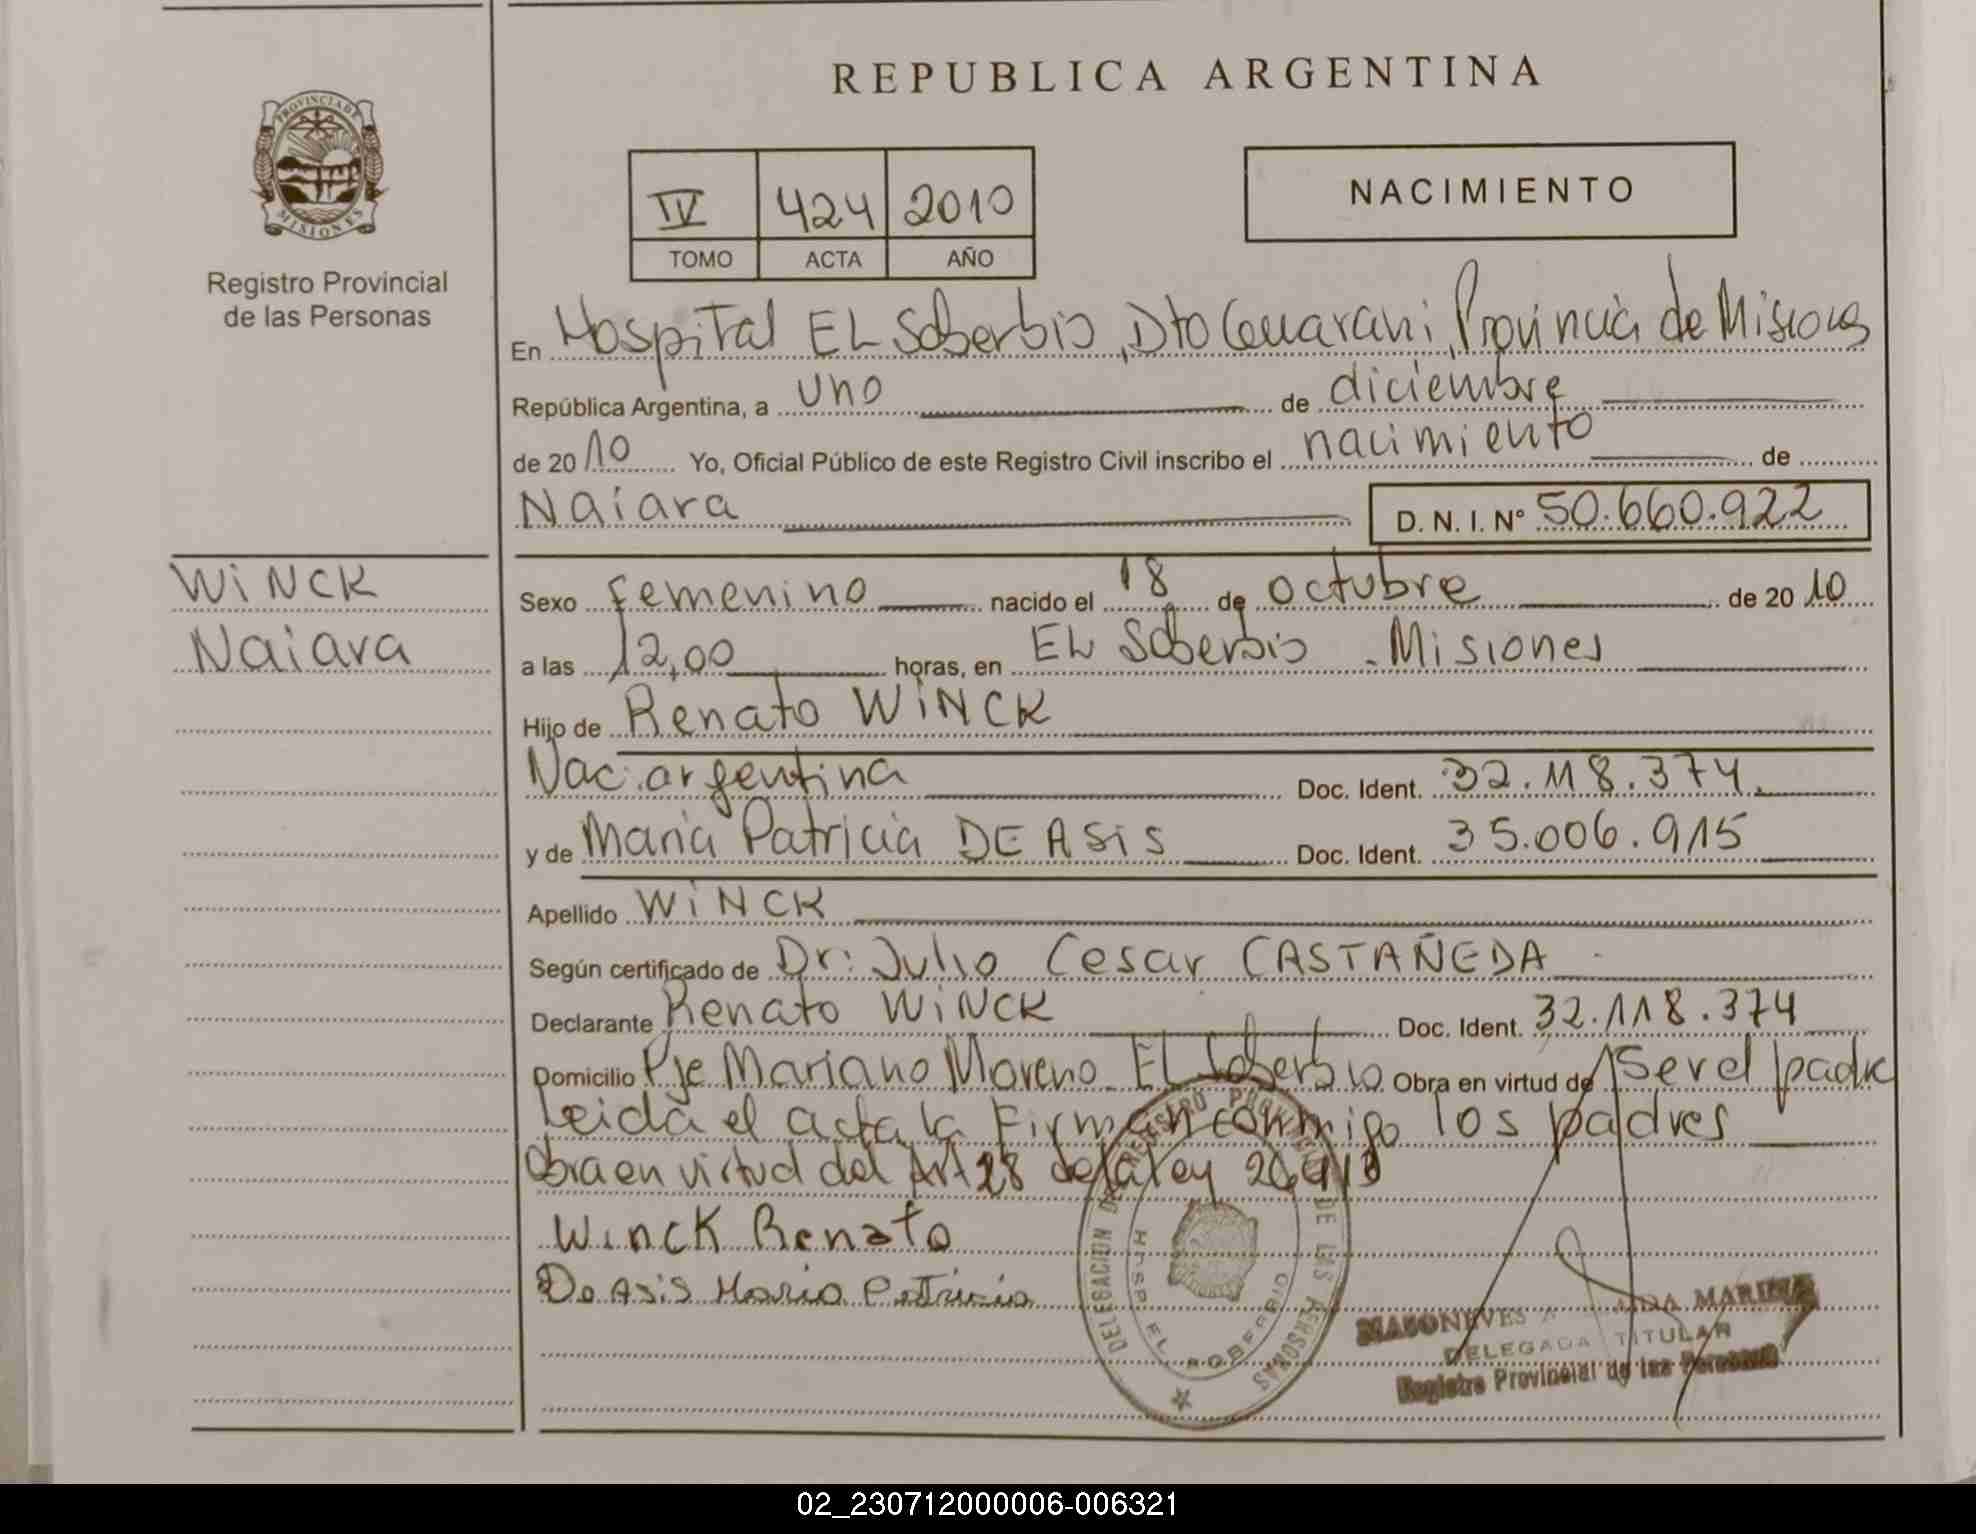 REPUBLICA ARGENTINA
PROVINCIA DE MISIONES
Registro Provincial
de las Personas
IV 424 2010
TOMO ACTA AÑO
NACIMIENTO
En Hospital EL Soberbio, Dto Guarani, Provincia de Misiones
República Argentina, a uno de diciembre
de 2010 Yo, Oficial Público de este Registro Civil inscribo el nacimiento de
Naiara D. N. I. N° 50.660.922
WiNCK
Naiara
Sexo Femenino nacido el 18 de octubre de 2010
a las 12,00 horas, en EL Soberbio - Misiones
Hijo de Renato WiNCK
Nac. argentina Doc. Ident. 32.118.374
y de Maria Patricia DE ASiS Doc. Ident. 35.006.915
Apellido WiNCK
Según certificado de Dr: Julio Cesar CASTAÑEDA
Declarante Renato WiNCK Doc. Ident. 32.118.374
Domicilio Pje Mariano Moreno El Soberbio Obra en virtud de Ser el padre
Leida el acta la Firman conmigo los padres
Obra en virtud del Art 28 de la ley 26413
Winck Renato
De Asis Maria Patricia
DELEGACION DE REGISTRO PROVINCIAL DE LAS PERSONAS
HOSP. EL SOBERBIO
DELEGADA TITULAR
Registro Provincial de las Personas
02_230712000006-006321